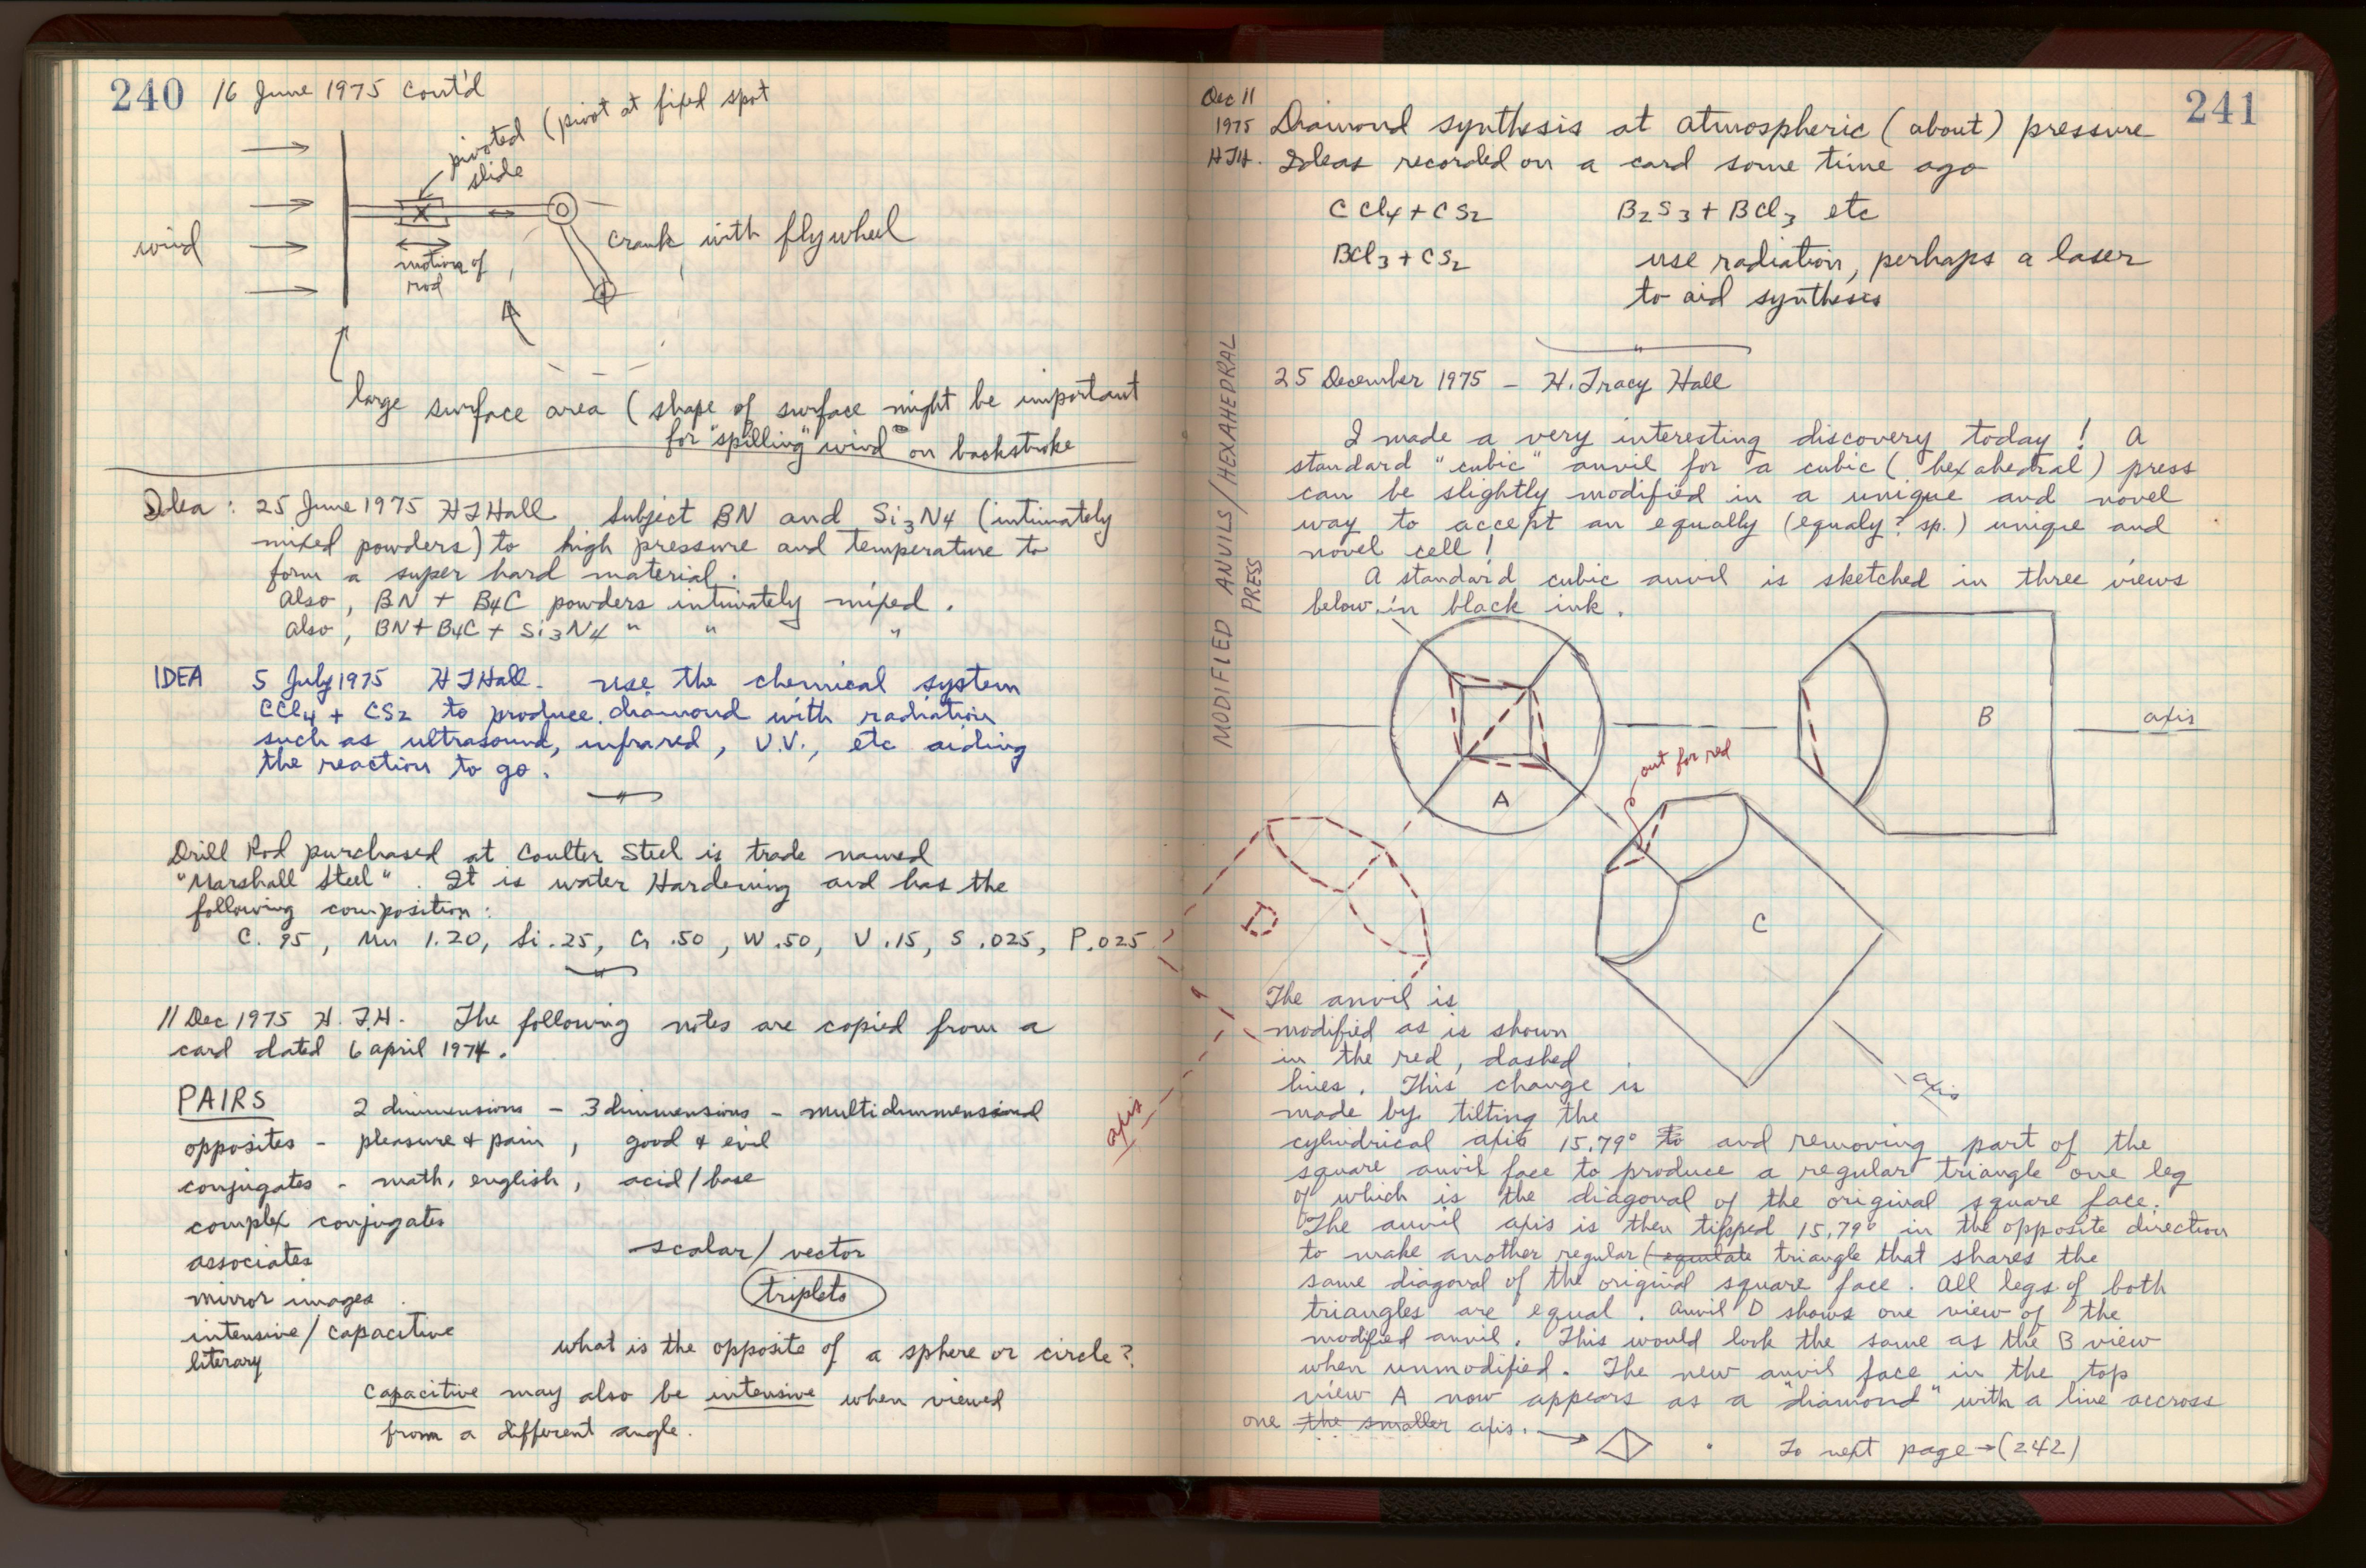 240 16 June 1975 Cont'd
pivoted (pivot at fixed spot
slide
wind
motion of
rod
crank with flywheel
large surface area (shape of surface might be important
for "spilling" wind on backstroke
Idea: 25 June 1975 HTHall Subject BN and Si3N4 (intimately
mixed powders) to high pressure and temperature to
form a super hard material.
Also, BN + B4C powders intimately mixed.
Also, BN + B4C + Si3N4 " " "
IDEA 5 July 1975 HTHall. use the chemical system
CCl4 + CS2 to produce diamond with radiation
such as ultrasound, infrared, U.V., etc aiding
the reaction to go.
Drill Rod purchased at Coulter Steel is trade named
"Marshall Steel". It is water Hardening and has the
following composition:
C .95, Mn 1.20, Si .25, Cr .50, W .50, V .15, S .025, P .025
11 Dec 1975 H.T.H. The following notes are copied from a
card dated 6 april 1974.
PAIRS 2 dimmensions - 3 dimmensions - multidimmensional
opposites - pleasure & pain, good & evil
conjugates - math, english, acid/base
complex conjugates
associates scalar/vector
mirror images triplets
intensive/capacitive
literary what is the opposite of a sphere or circle?
capacitive may also be intensive when viewed
from a different angle.
241
Dec 11
1975
HTH.
Diamond synthesis at atmospheric (about) pressure
Ideas recorded on a card some time ago
CCl4 + CS2 B2S3 + BCl3 etc
BCl3 + CS2 use radiation, perhaps a laser
to aid synthesis
MODIFIED ANVILS/HEXAHEDRAL
PRESS
25 December 1975 - H. Tracy Hall
I made a very interesting discovery today! A
standard "cubic" anvil for a cubic (hexahedral) press
can be slightly modified in a unique and novel
way to accept an equally (equaly? sp.) unique and
novel cell!
A standard cubic anvil is sketched in three views
below in black ink.
A
B
axis
cut for red
C
axis
D
axis
The anvil is
modified as is shown
in the red, dashed
lines. This change is
made by tilting the
cylindrical axis 15.79° to and removing part of the
square anvil face to produce a regular triangle one leg
of which is the diagonal of the original square face.
The anvil axis is then tipped 15.79° in the opposite direction
to make another regular (equilate triangle that shares the
same diagonal of the original square face. All legs of both
triangles are equal. Anvil D shows one view of the
modified anvil. This would look the same as the B view
when unmodified. The new anvil face in the top
view A now appears as a "diamond" with a line accross
one the smaller axis. →
To next page → (242)